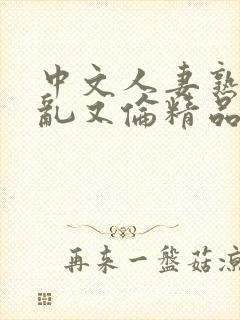 中文人妻熟
乱又伦精品
再来一盘菇凉